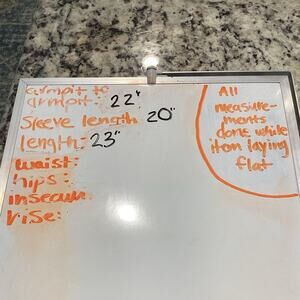 armpit to
armpit: 22"
Sleeve length: 20"
length: 23"
waist:
hips:
inseam:
rise:
All
measure-
ments
done while
item laying
flat